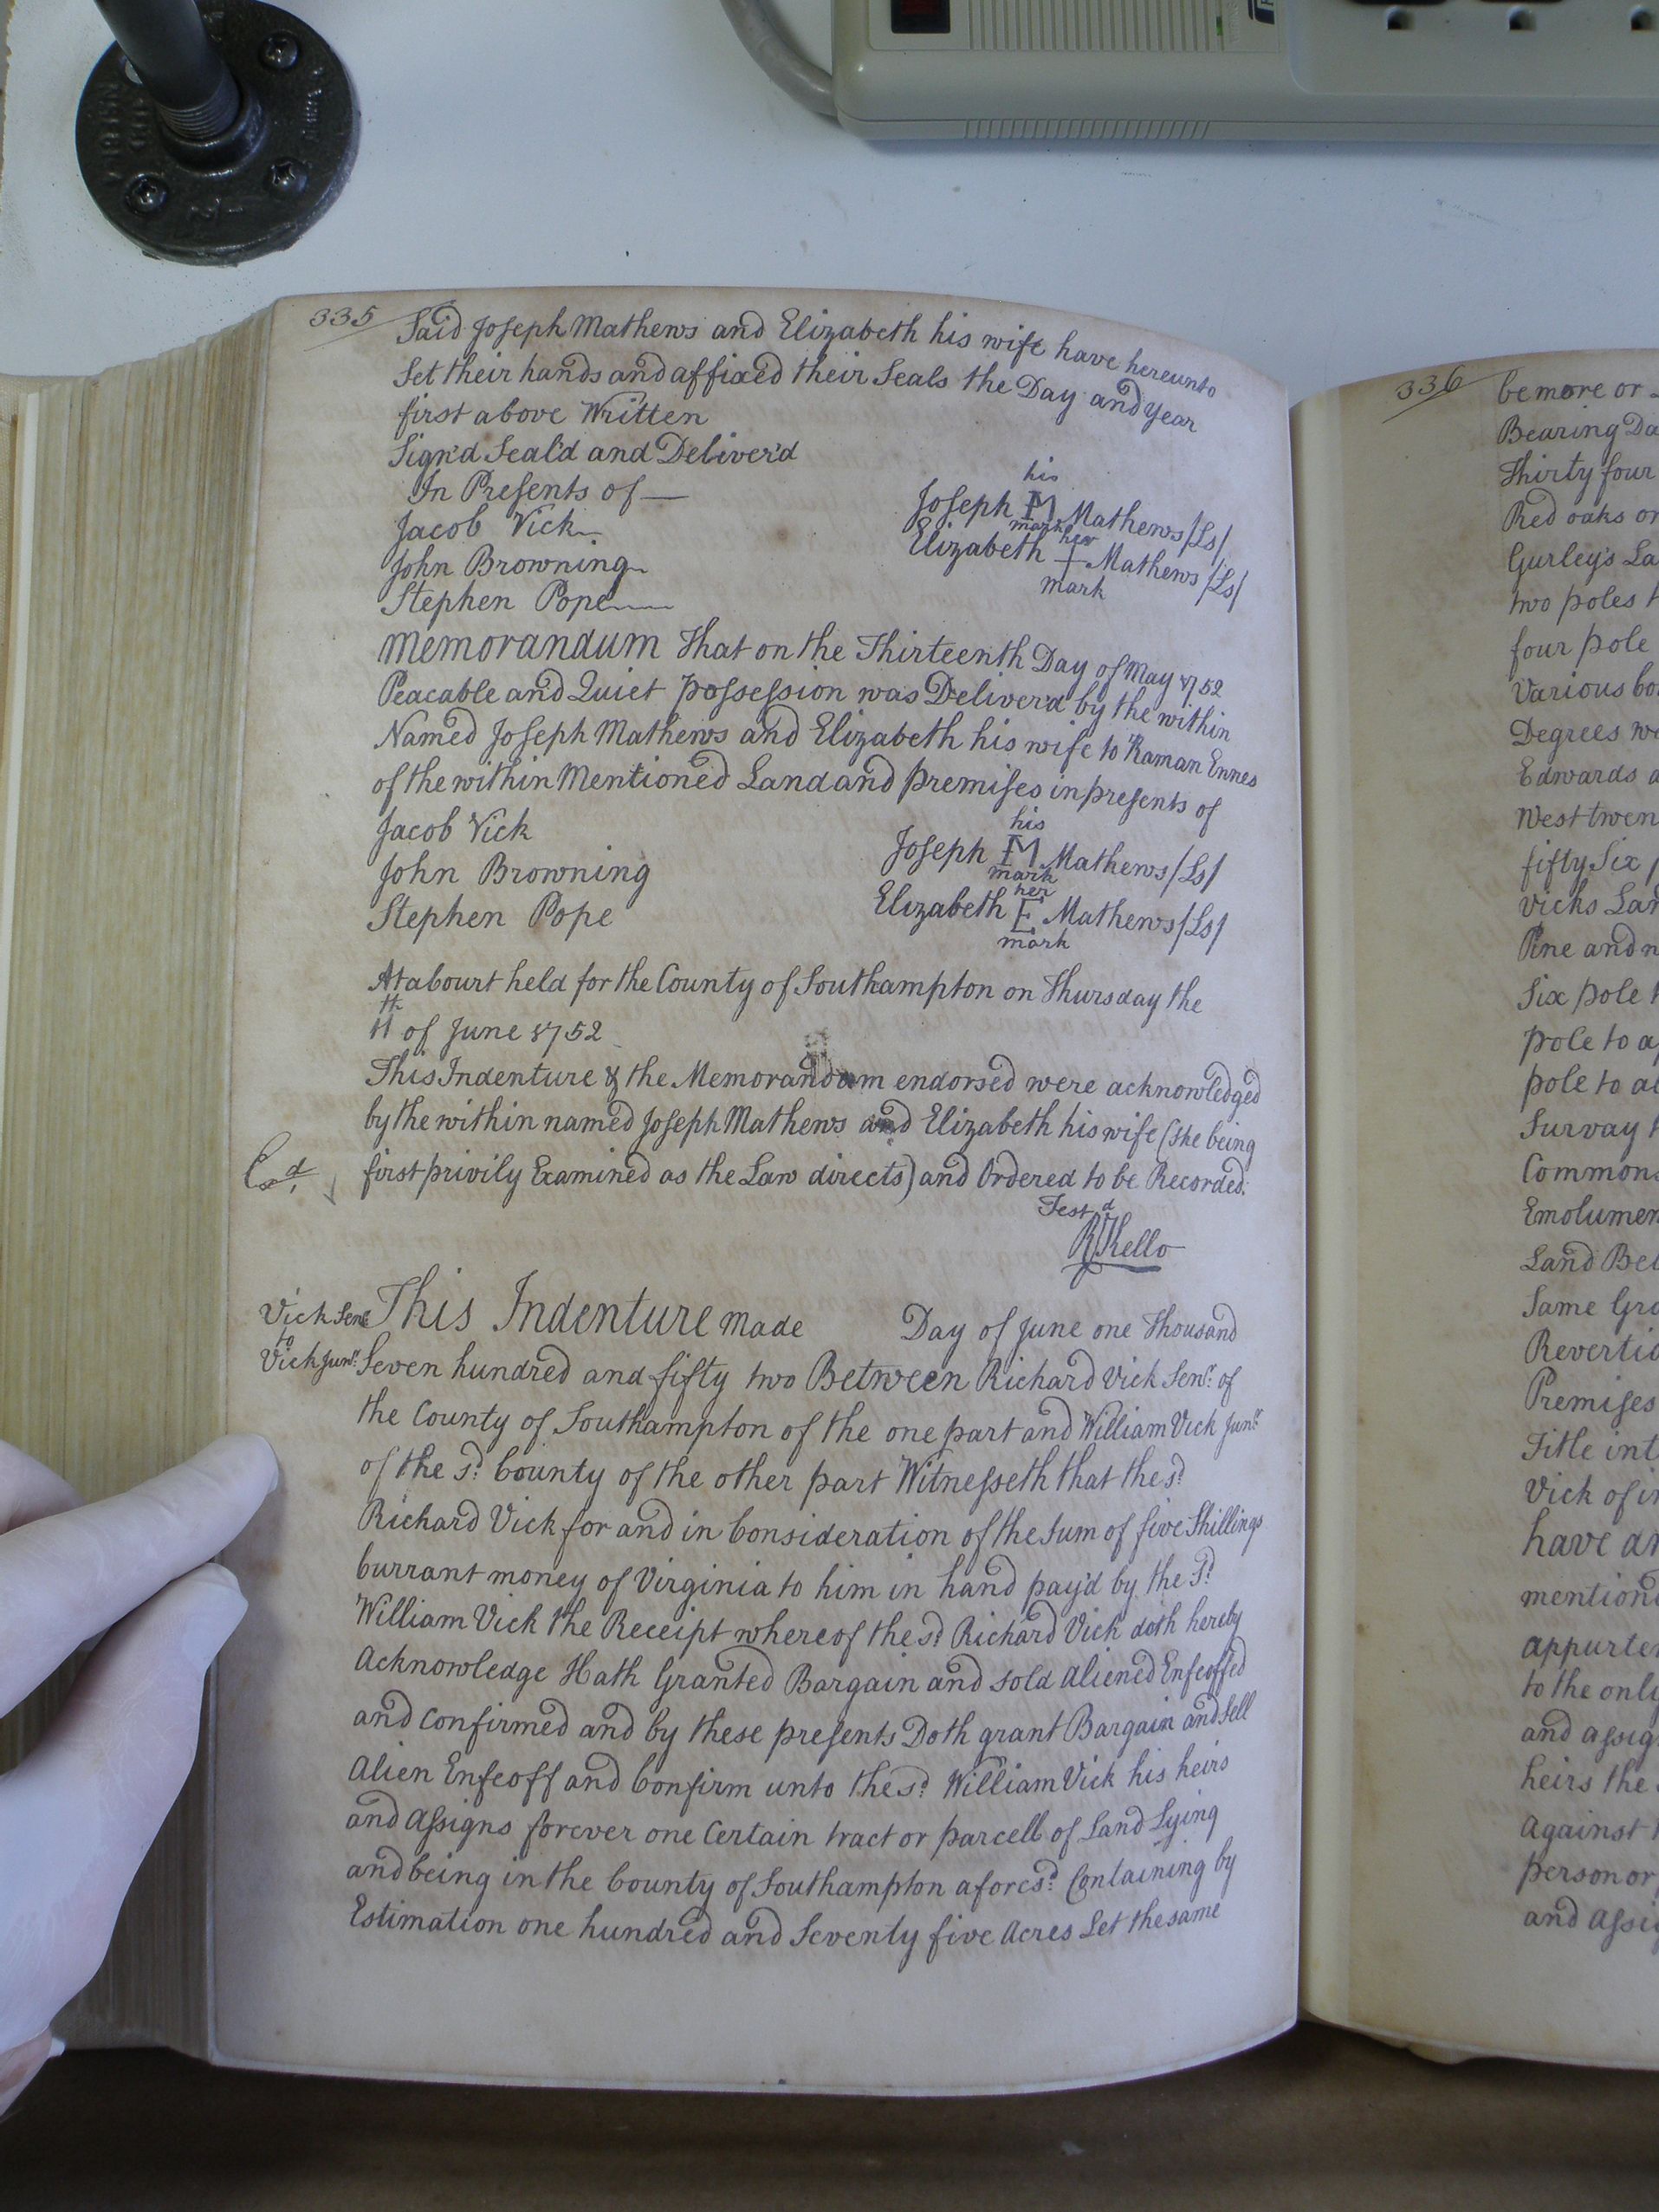 335
Said Joseph Mathews and Elizabeth his wife have hereunto
Set their hands and affixed their Seals the Day and year
first above Written
Sign'd Seal'd and Deliver'd
In Presents of
Jacob Vick
John Browning
Stephen Pope
his
Joseph M Mathews /Ls/
mark
her
Elizabeth E Mathews /Ls/
mark
Memorandum That on the Thirteenth Day of May 1752
Peacable and Quiet possession was Deliver'd by the within
Named Joseph Mathews and Elizabeth his wife to Raman Ennes
of the within Mentioned Land and premises in presents of
Jacob Vick
John Browning
Stephen Pope
his
Joseph M Mathews /Ls/
mark
her
Elizabeth E Mathews /Ls/
mark
At a Court held for the County of Southampton on Thursday the
11th of June 1752
This Indenture & the Memorandum endorsed were acknowledged
by the within named Joseph Mathews and Elizabeth his wife (she being
first privily Examined as the Law directs) and Ordered to be Recorded.
Exd.
Test
RdKello
Vick Senr.
to
Vick Junr.
This Indenture Made Day of June one Thousand
Seven hundred and fifty two Between Richard Vick Senr. of
the County of Southampton of the one part and William Vick Junr.
of the sd. County of the other part Witnesseth that the sd.
Richard Vick for and in Consideration of the Sum of five Shillings
Currant money of Virginia to him in hand pay'd by the Sd.
William Vick the Receipt whereof the sd. Richard Vick doth hereby
Acknowledge Hath Granted Bargain and sold Aliened Enfeoffed
and Confirmed and by these presents Doth grant Bargain and Sell
Alien Enfeoff and Confirm unto the sd. William Vick his heirs
and Assigns forever one Certain tract or parcell of Land Lying
and being in the County of Southampton aforesd. Containing by
Estimation one hundred and Seventy five Acres Let the same
336
be more or
Bearing
Thirty four
Red oaks
Gurley's
two poles
four pole
Various
Degrees
Edwards
West
fifty Six
Vicks
Pine and
Six pole
pole to
pole to
Survay
Commons
Land
Same
Premises
Title
Vick of
have
to the only
and
heirs the
Against
person or
and